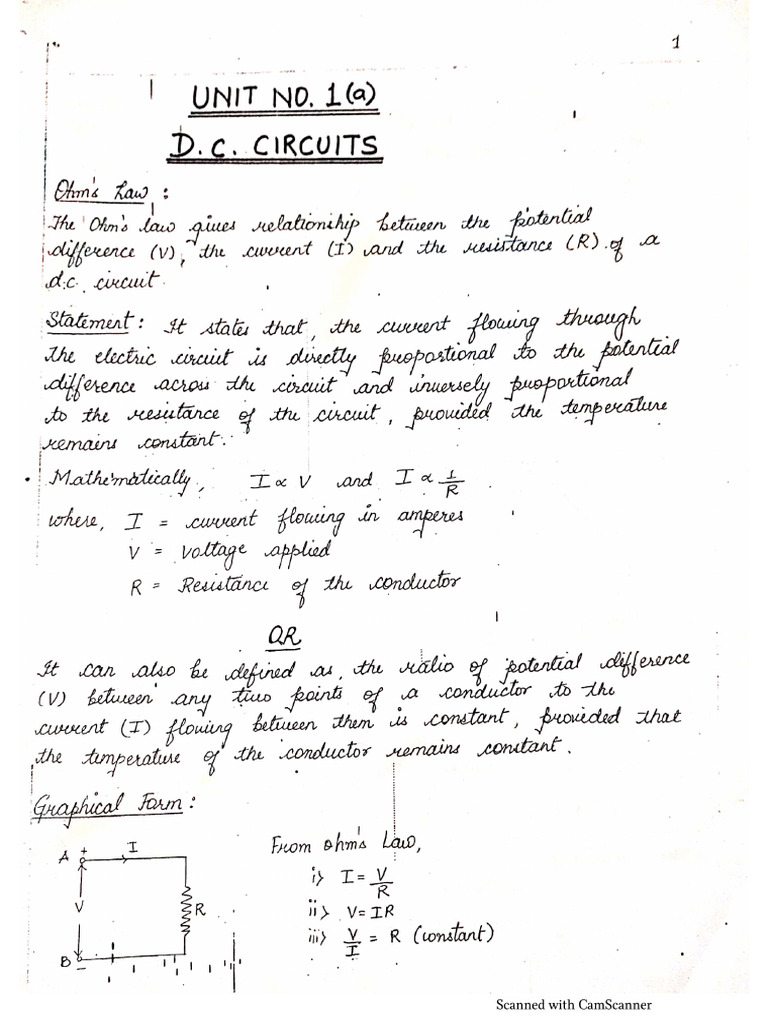 1
UNIT NO. 1(a)
D.C. CIRCUITS
Ohm's Law:
The Ohm's law gives relationship between the potential
difference (V), the current (I) and the resistance (R) of a
d.c. circuit.
Statement: It states that, the current flowing through
the electric circuit is directly proportional to the potential
difference across the circuit and inversely proportional
to the resistance of the circuit, provided the temperature
remains constant.
Mathematically, I ∝ V and I ∝ 1/R
where, I = current flowing in amperes
V = voltage applied
R = Resistance of the conductor
OR
It can also be defined as, the ratio of potential difference
(V) between any two points of a conductor to the
current (I) flowing between them is constant, provided that
the temperature of the conductor remains constant.
Graphical Form:
A + I
V
R
B -
From Ohm's Law,
i> I = V/R
ii> V = IR
iii> V/I = R (constant)
Scanned with CamScanner